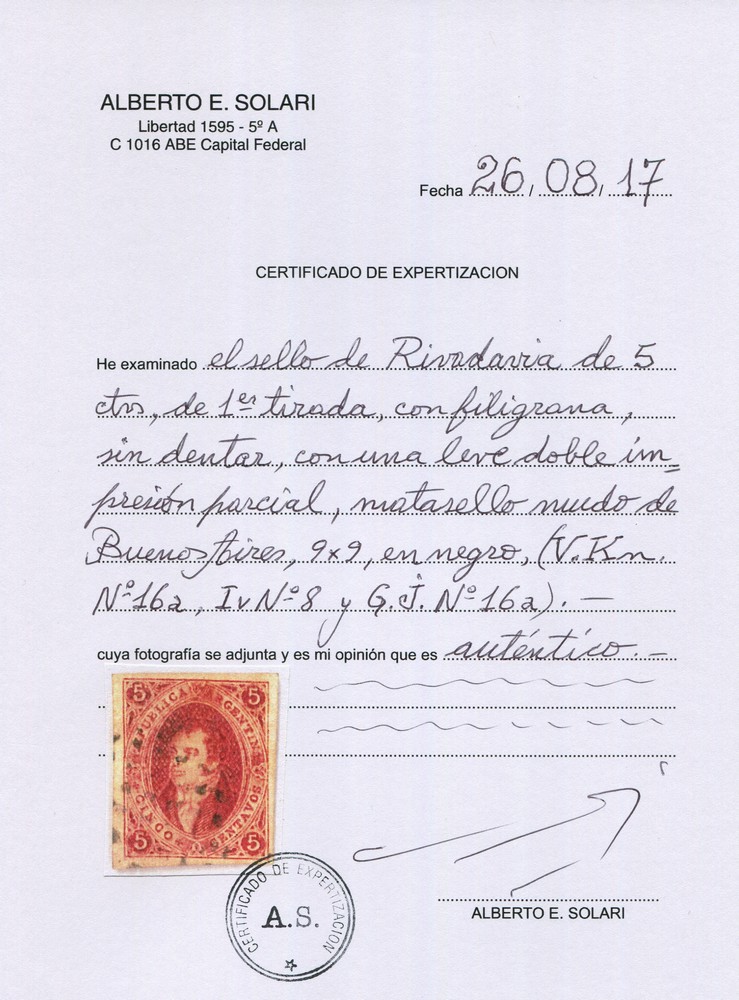 ALBERTO E. SOLARI
Libertad 1595 - 5º A
C 1016 ABE Capital Federal
Fecha 26 / 08 / 17
CERTIFICADO DE EXPERTIZACION
He examinado el sello de Rivadavia de 5
ctvs, de 1er tirada, con filigrana,
sin dentar, con una leve doble im=
presión parcial, matasello mudo de
Buenos Aires, 9x9, en negro, (V.Kn.
Nº16a, Iv Nº8 y G.J. Nº16a). —
cuya fotografía se adjunta y es mi opinión que es auténtico. —
5 5
REPUBLICA ARGENTINA
CINCO CENTAVOS
5 5
CERTIFICADO DE EXPERTIZACION
A.S.
ALBERTO E. SOLARI